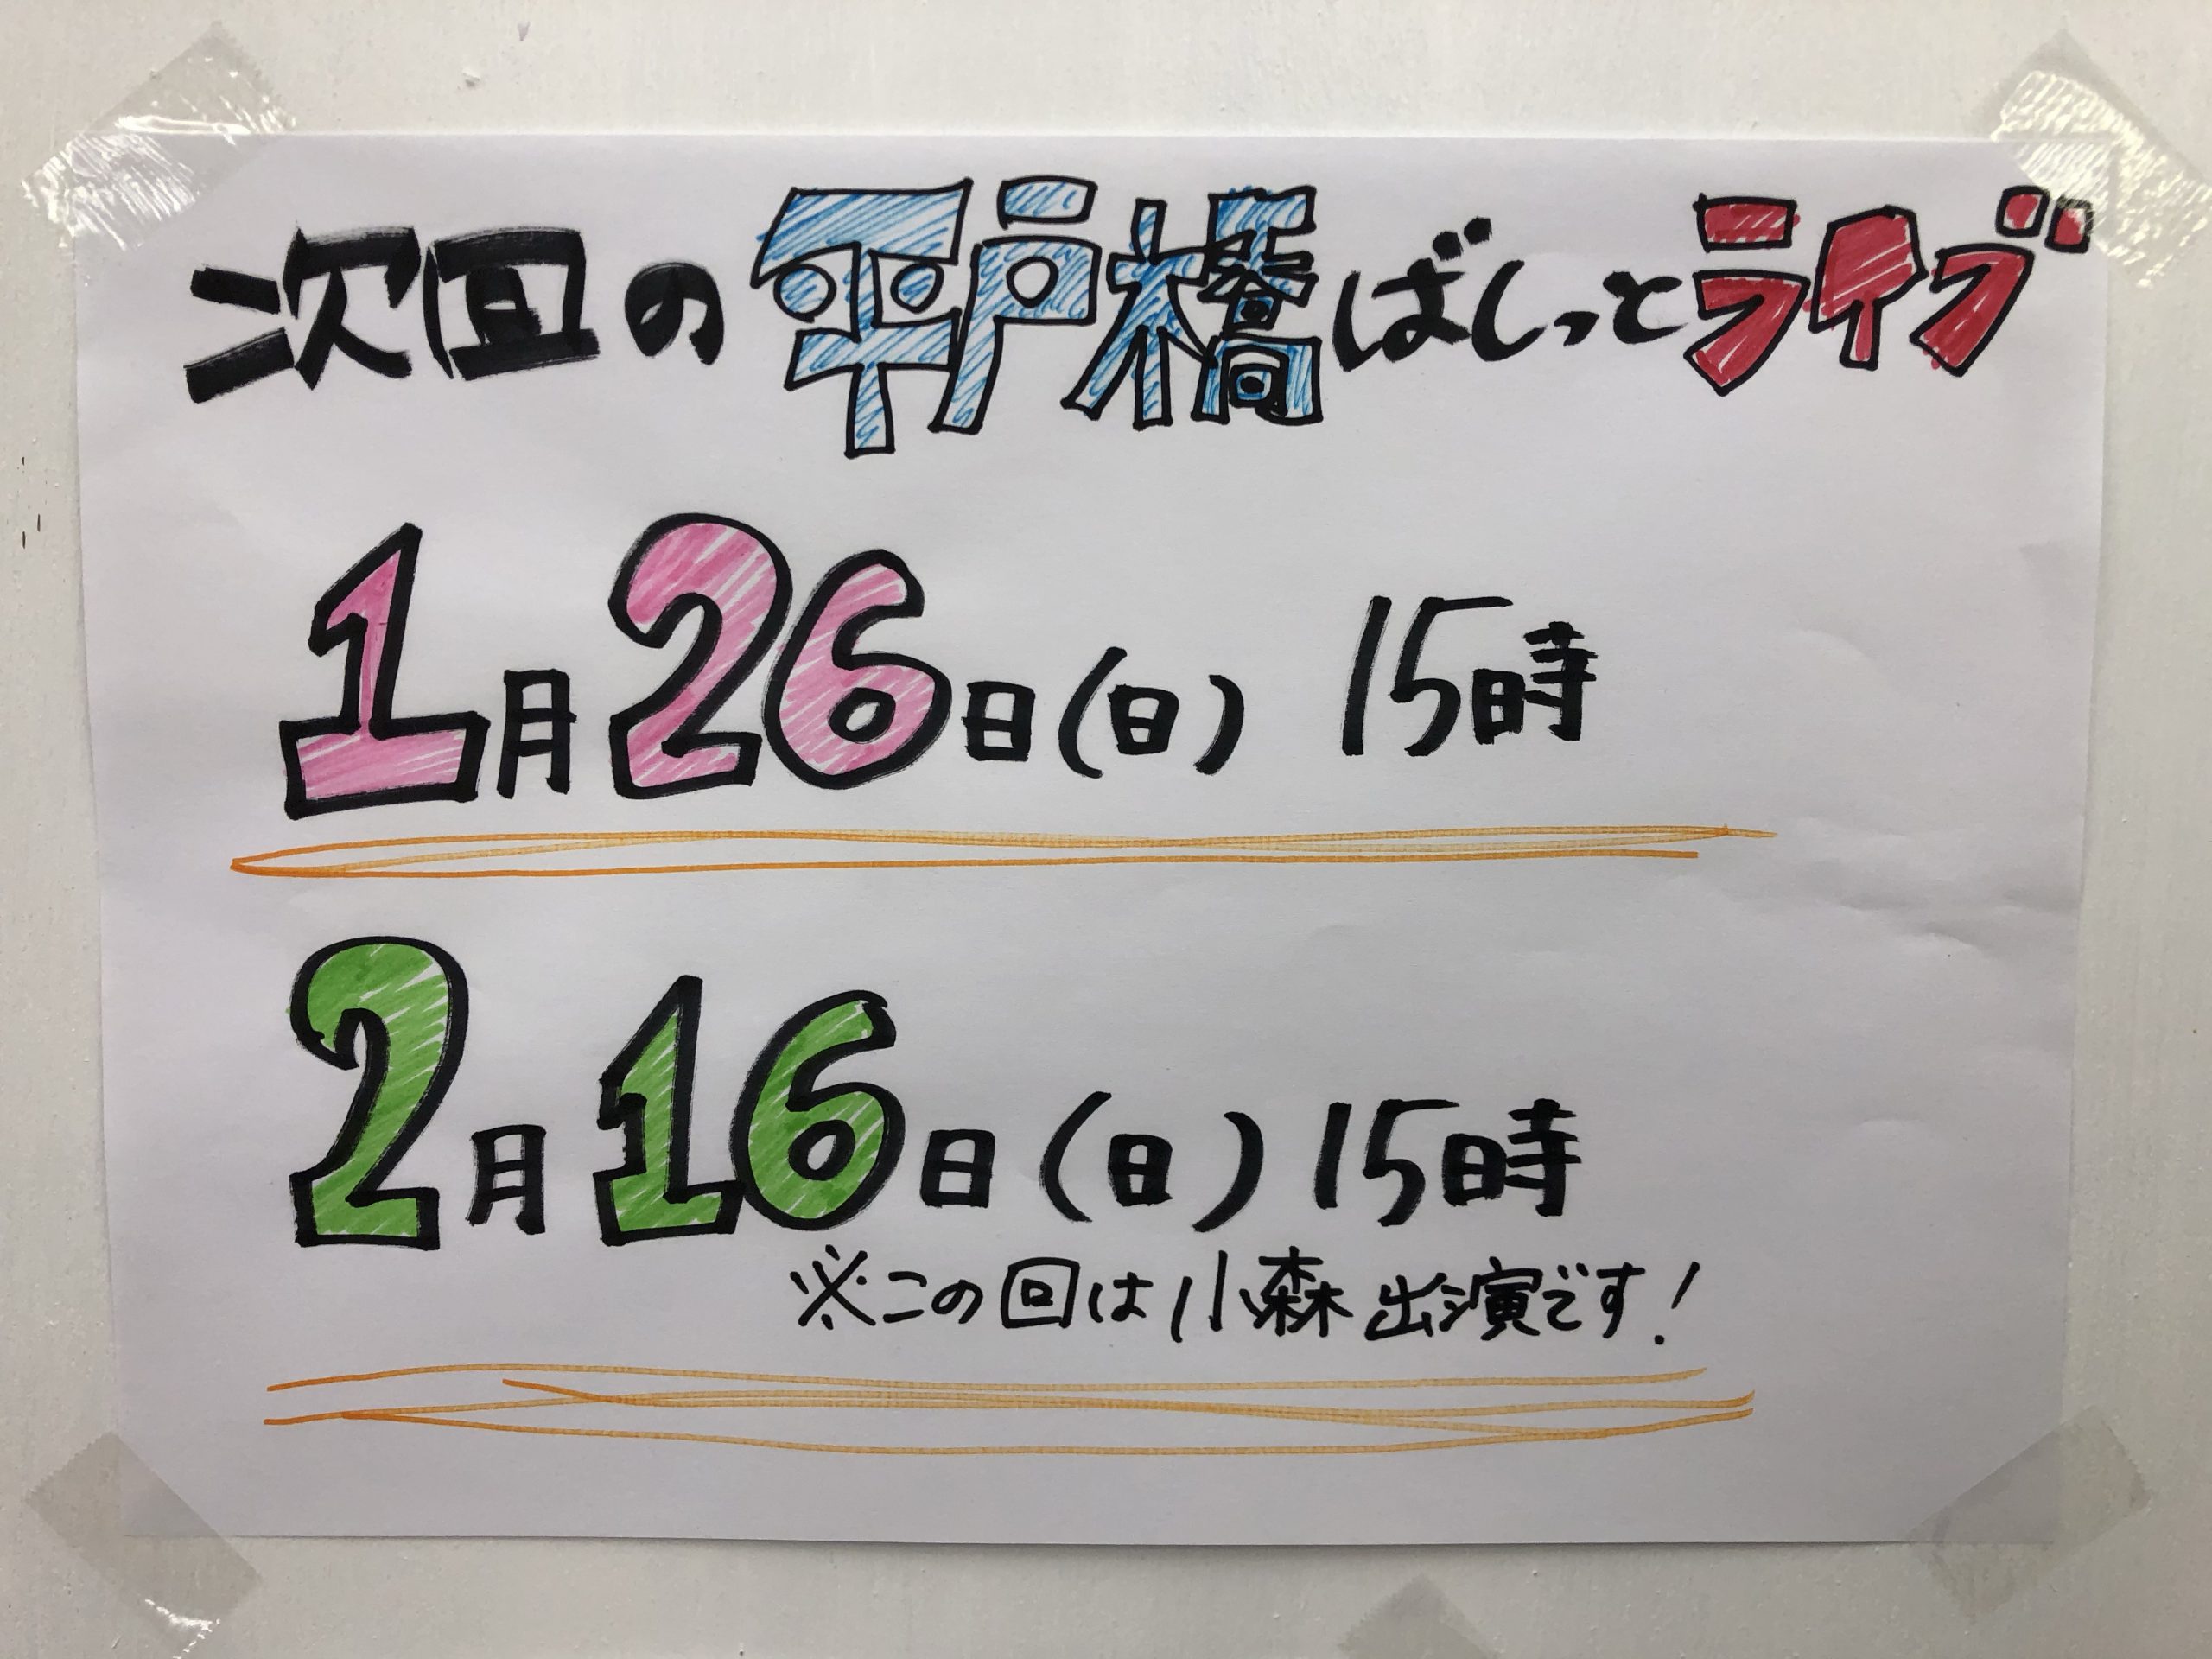 次回の平戸橋ばしっとライブ
1月26日(日) 15時
2月16日(日)15時
※この回は小森出演です!